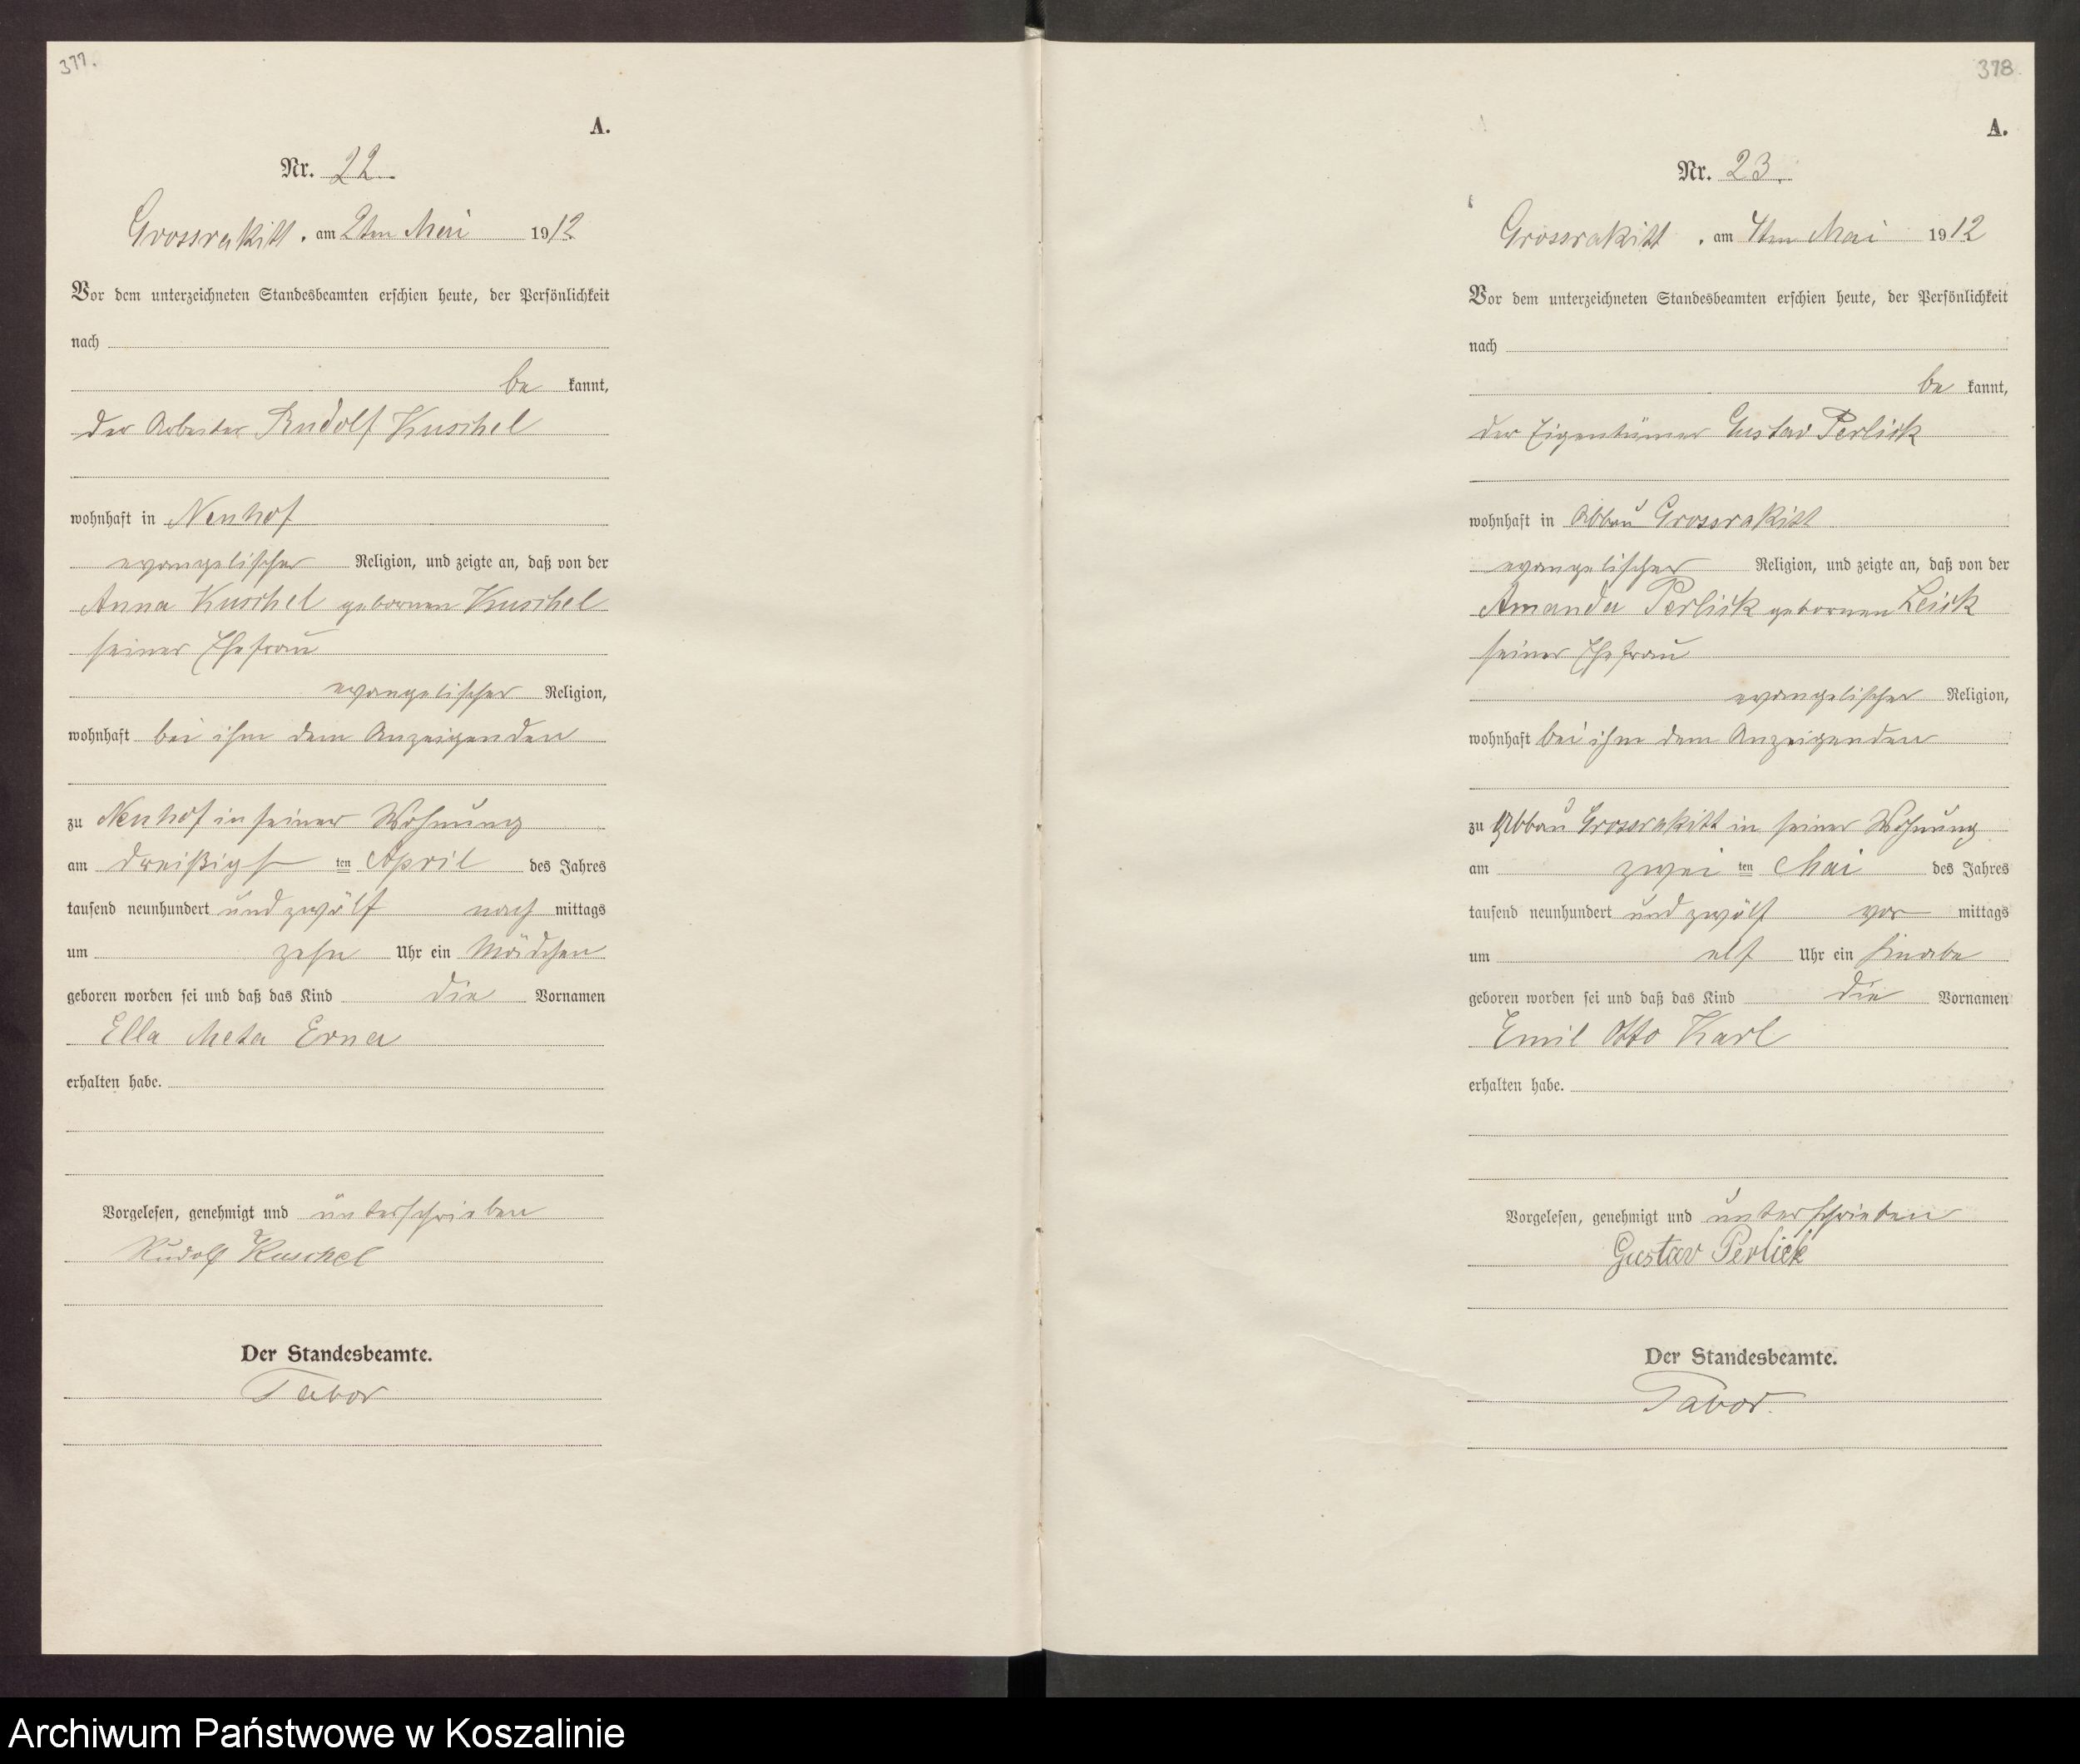 377.
A.
Nr. 22.
Grossrakitt, am 2ten Mai 1912
Vor dem unterzeichneten Standesbeamten erschien heute, der Persönlichkeit
nach
be kannt,
der Arbeiter Rudolf Kuschel
wohnhaft in Neuhof
evangelischer Religion, und zeigte an, daß von der
Anna Kuschel geborenen Kuschel
seiner Ehefrau
evangelischer Religion,
wohnhaft bei ihm dem Anzeigenden
zu Neuhof in seiner Wohnung
am dreißigsten April des Jahres
tausend neunhundert und zwölf nach mittags
um zehn Uhr ein Mädchen
geboren worden sei und daß das Kind die Vornamen
Ella Meta Erna
erhalten habe.
Vorgelesen, genehmigt und unterschrieben
Rudolf Kuschel
Der Standesbeamte.
Tabor
378
A.
Nr. 23.
Grossrakitt, am 4ten Mai 1912
Vor dem unterzeichneten Standesbeamten erschien heute, der Persönlichkeit
nach
be kannt,
der Eigentümer Gustav Perlick
wohnhaft in Abbau Grossrakitt
evangelischer Religion, und zeigte an, daß von der
Amanda Perlick geborenen Leick
seiner Ehefrau
evangelischer Religion,
wohnhaft bei ihm dem Anzeigenden
zu Abbau Grossrakitt in seiner Wohnung
am zwei ten Mai des Jahres
tausend neunhundert und zwölf vor mittags
um elf Uhr ein Knabe
geboren worden sei und daß das Kind die Vornamen
Emil Otto Karl
erhalten habe.
Vorgelesen, genehmigt und unterschrieben
Gustav Perlick
Der Standesbeamte.
Tabor.
Archiwum Państwowe w Koszalinie